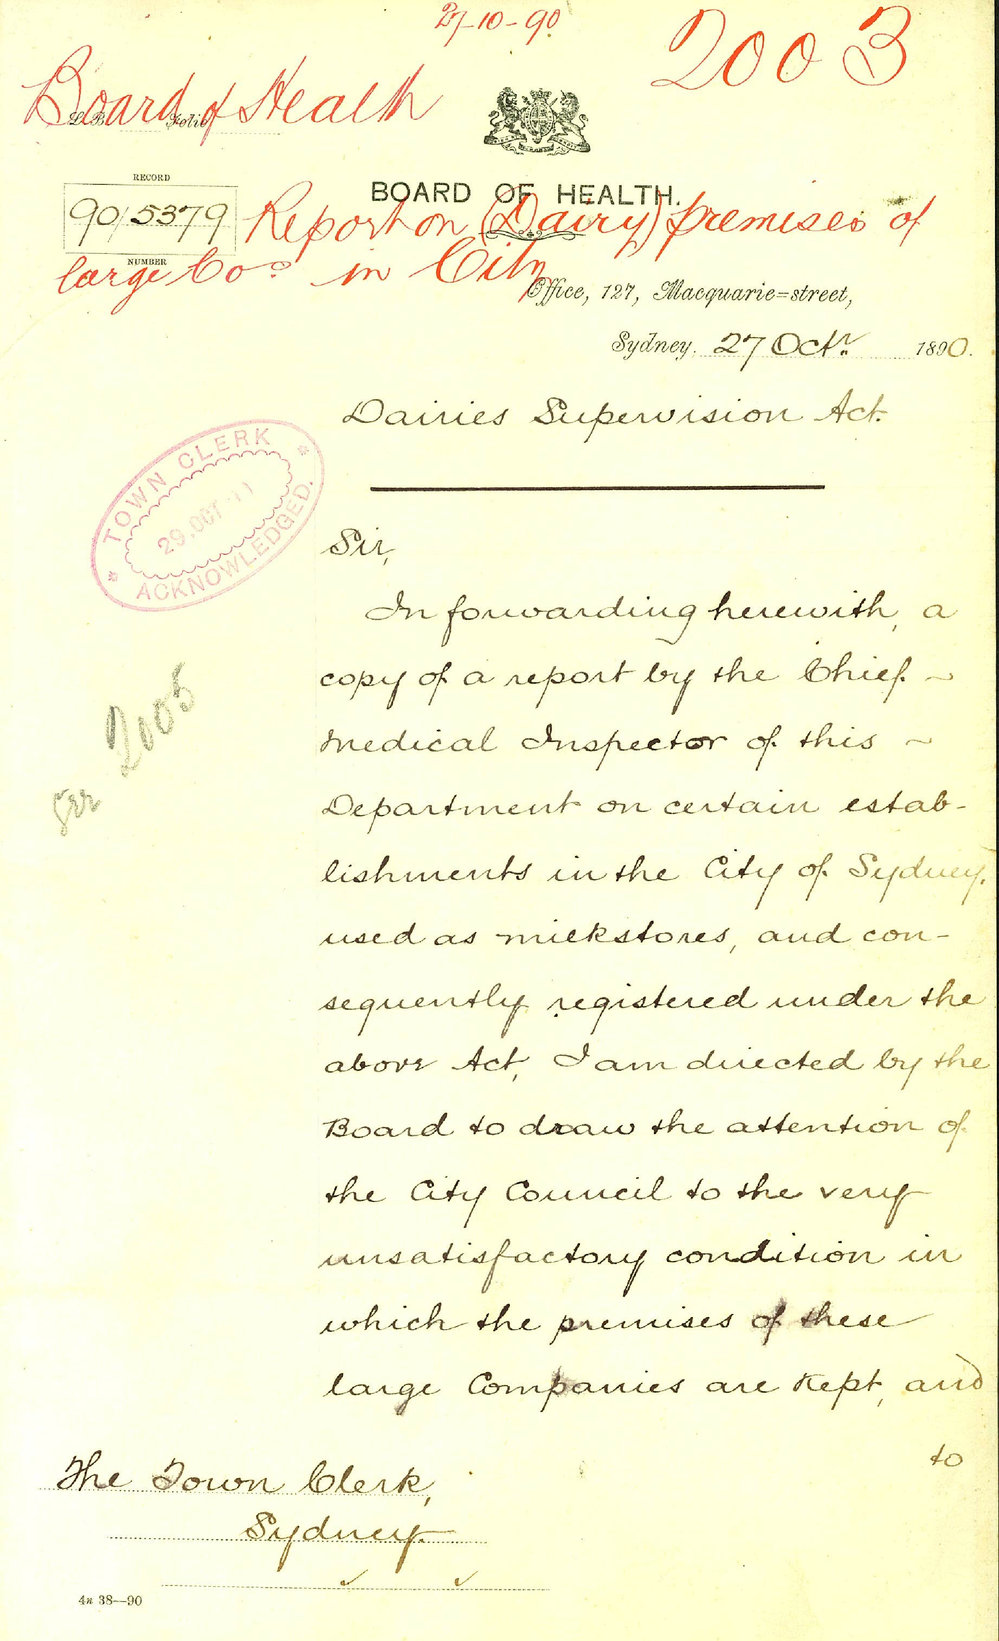 27-10-90
2003
Board of Health
BOARD OF HEALTH.
RECORD
90/5379
NUMBER
Report on (Dairy) premises of
large Cos. in City
Office, 127, Macquarie=street,
Sydney, 27 Octr. 1890.
Dairies Supervision Act.
TOWN CLERK
29.OCT
ACKNOWLEDGED.
Sir,
In forwarding herewith, a
copy of a report by the Chief ~
Medical Inspector of this ~
Department on certain estab-
lishments in the City of Sydney,
used as milkstores, and con-
sequently registered under the
above Act, I am directed by the
Board to draw the attention of
the City Council to the very
unsatisfactory condition in
which the premises of these
large Companies are kept, and
to
2005
The Town Clerk,
Sydney.
4n 38--90